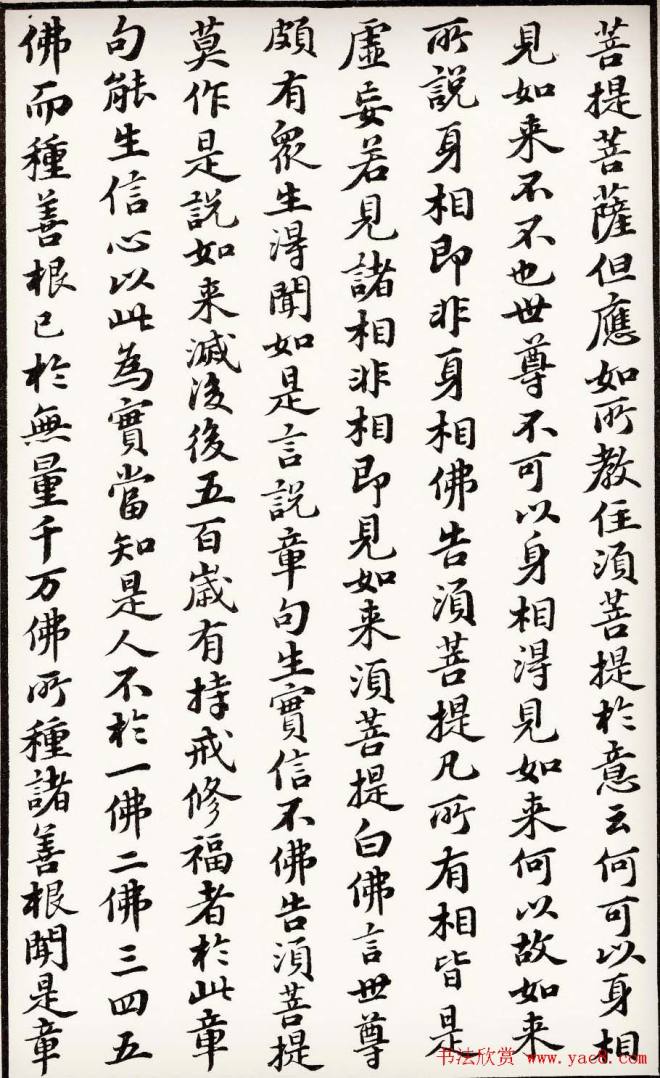 菩提菩薩但應如所教住須菩提於意云何可以身相
見如来不不也世尊不可以身相得見如来何以故如来
所說身相即非身相佛告須菩提凡所有相皆是
虛妄若見諸相非相即見如来須菩提白佛言世尊
頗有眾生得聞如是言說章句生實信不佛告須菩提
莫作是說如来滅後後五百歲有持戒修福者於此章
句能生信心以此為實當知是人不於一佛二佛三四五
佛而種善根已於無量千万佛所種諸善根聞是章
书法欣赏 www.yac8.com